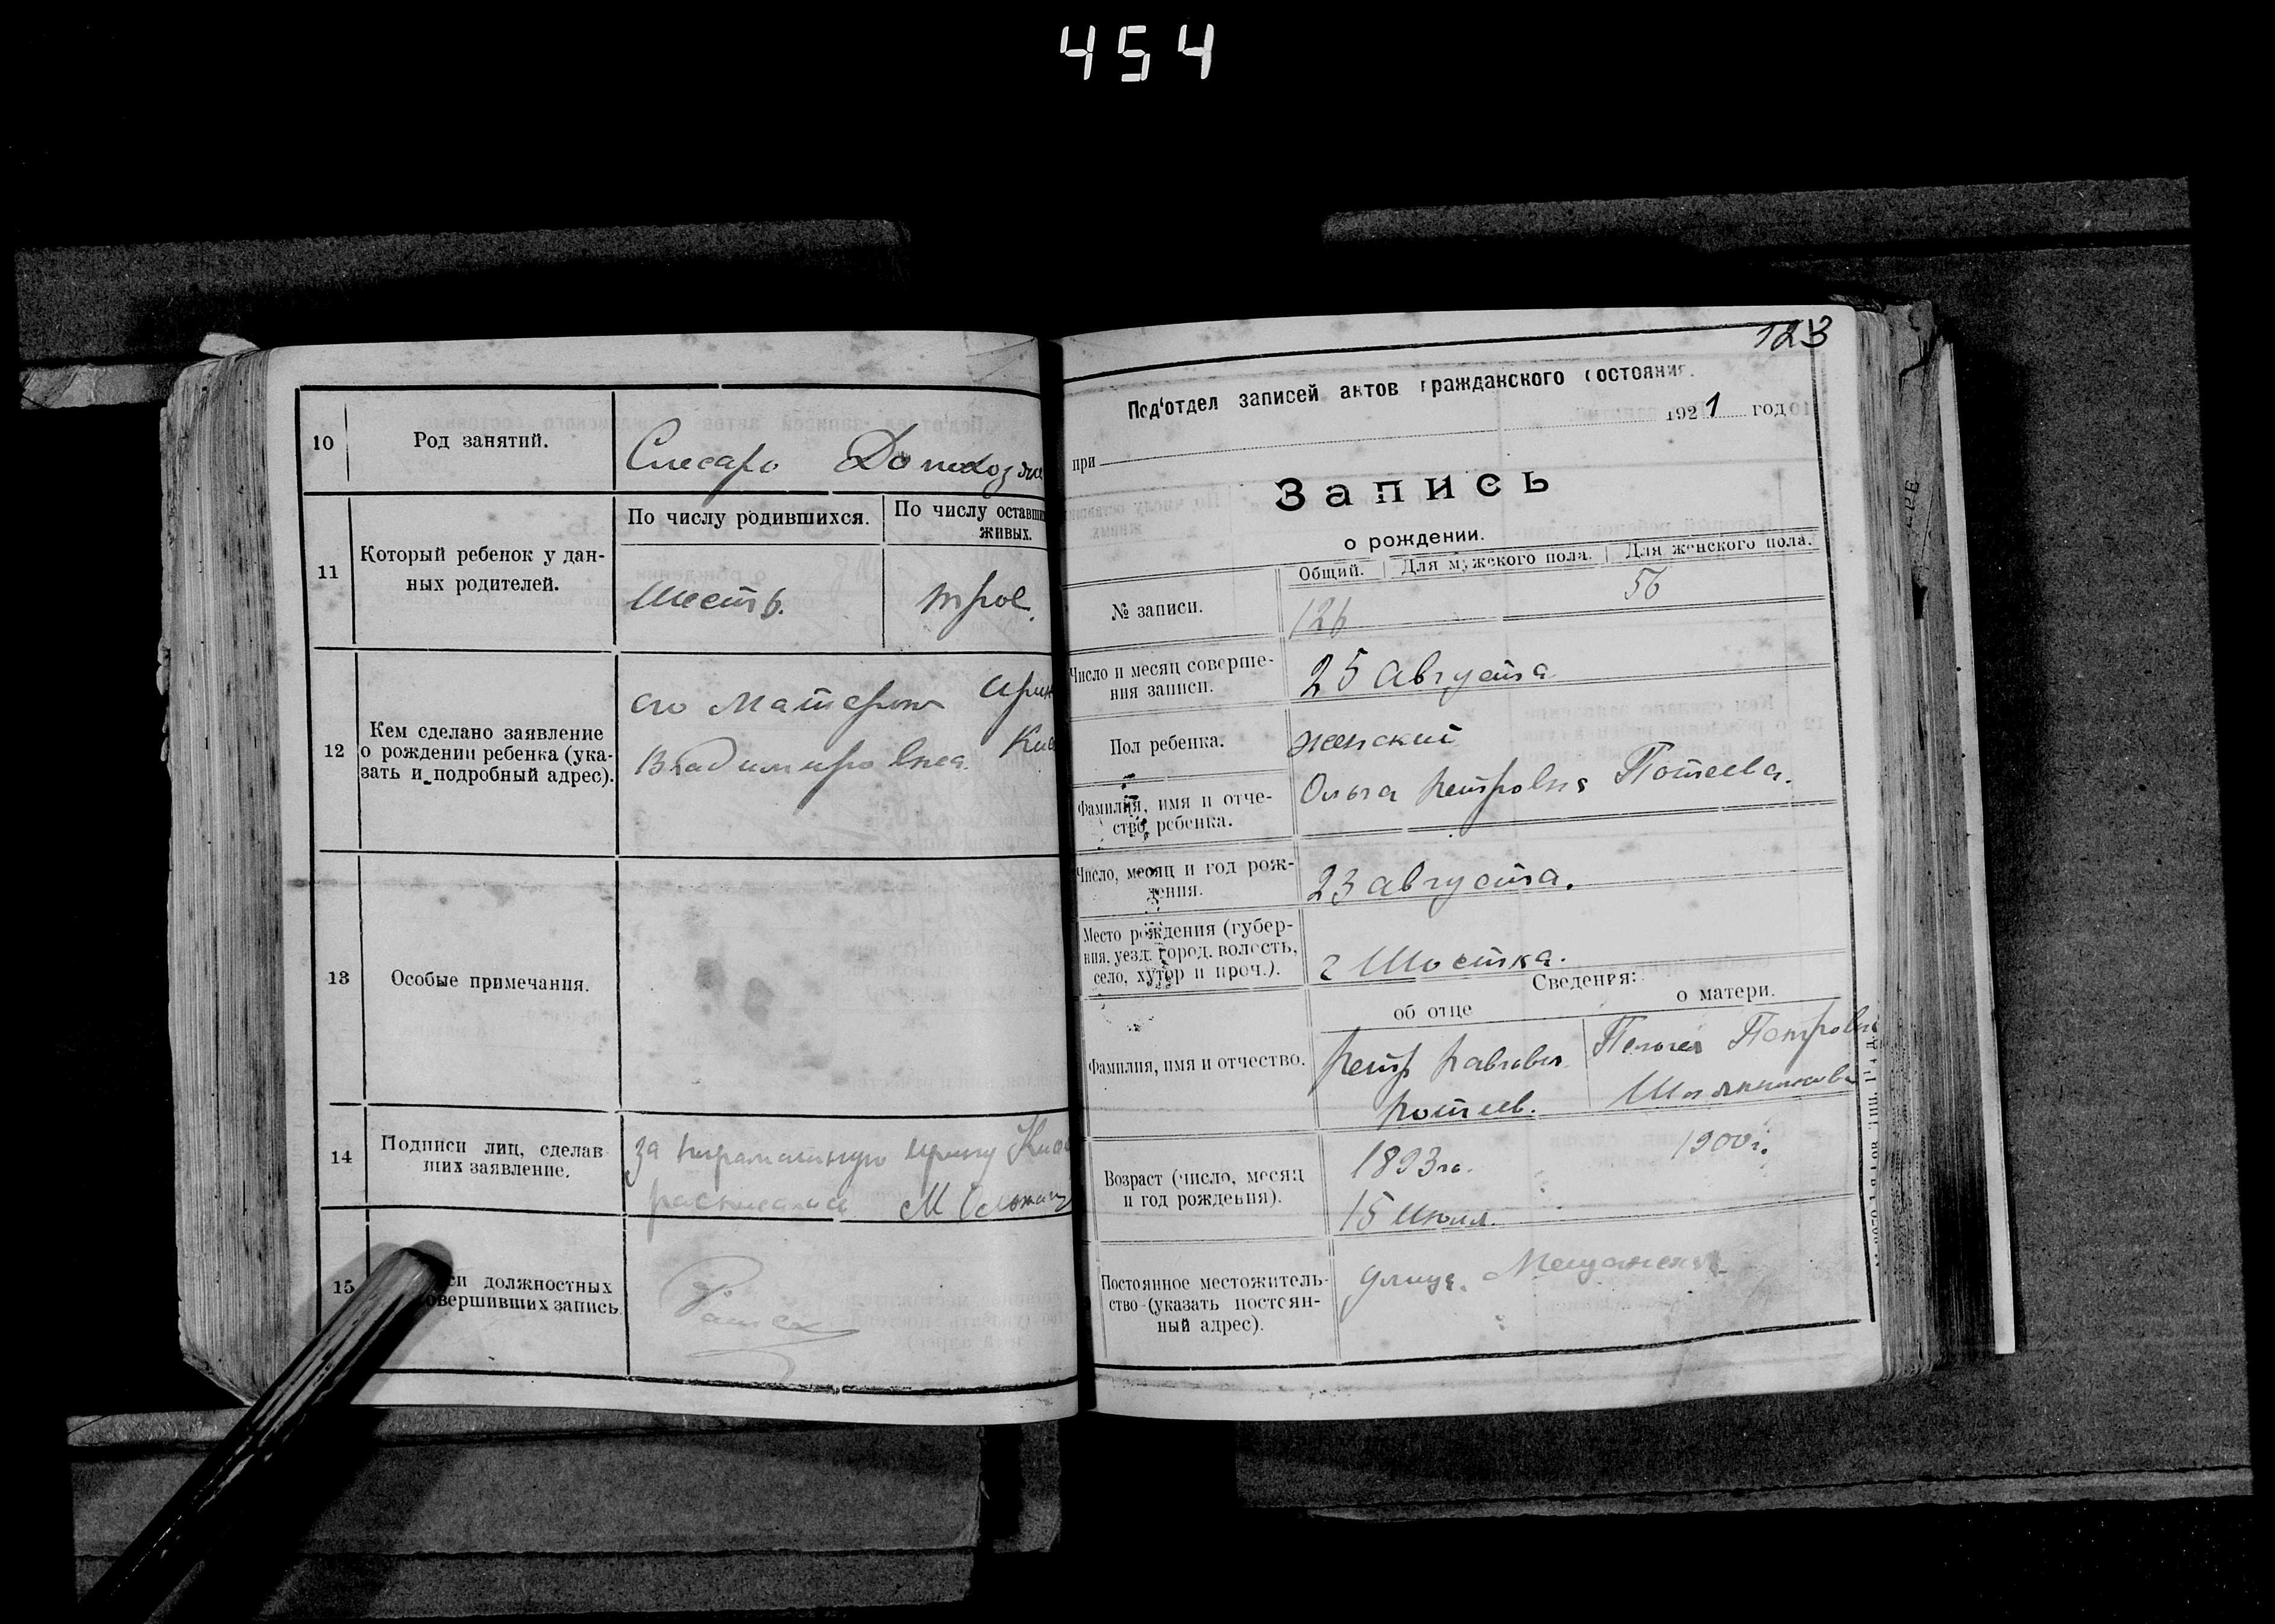 454
10
Род занятий.
Слесарь
11
Который ребенок у дан-
ных родителей.
По числу родившихся.
По числу оставши
живых.
Шесть.
трое.
12
Кем сделано заявление
о рождении ребенка (ука-
зать и подробный адрес).
его Матерью Ирин
Владимировна.
13
Особые примечания.
14
Подписи лиц, сделав
ших заявление.
за неграмотную Ирину
расписался М
15
си должностных
овершивших запись.
123
Под'отдел записей актов гражданского состояния.
1921 год
при
Запись
о рождении.
Общий. Для мужского пола. Для женского пола.
№ записи.
126
56
Число и месяц соверше-
ния записи.
25 августа
Пол ребенка.
женский
Фамилия, имя и отче-
ство ребенка.
Ольга Петровна Потеева.
Число, месяц и год рож-
дения.
23 августа.
Место рождения (губер-
ния, уезд, город, волость,
село, хутор и проч.).
г Шостка.
Сведения:
об отце
о матери.
Фамилия, имя и отчество.
Петр Павлович
Потеев.
Петровн
Возраст (число, месяц
и год рождения).
1893 го.
15 Июля.
1900 г.
Постоянное местожитель-
ство (указать постоян-
ный адрес).
улица. Мещанская